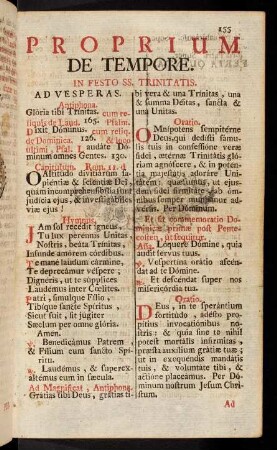 155
PROPRIUM
DE TEMPORE.
IN FESTO SS. TRINITATIS.
AD VESPERAS.
Antiphona.
Glória tibi Trinitas cum re-
liquis de Laud. 165. Psalm.
Dixit Dóminus. cum reliq.
de Dominica. 126. & loco
ultimi, Psal. Laudáte Dó-
minum omnes Gentes. 130.
Capitulum. Rom. 11. d.
O Altitúdo divitiárum sa-
piéntiæ & sciéntiæ Dei,
quàm incomprehensibília sunt
judícia ejus, & investigábiles
viæ ejus!
Hymnus.
JAm sol recédit ígneus,
Tu lux perénnis Unitas
Nostris, beáta Trínitas,
Infúnde amórem córdibus.
Te manè laudum cármine,
Te deprecámur véspere;
Dignéris, ut te súpplices
Laudémus inter Cœlites.
Patri, simúlque Fílio,
Tibíque sancte Spíritus,
Sicut fuit, sit júgiter
Sæclum per omne glória.
Amen.
℣. Benedicámus Patrem &
& Fílium cum sancto Spí-
ritu.
℟. Laudémus, & superex-
altémus eum in sæcula.
Ad Magnificat, Antiphona.
Grátias tibi Deus, grátias ti-
bi vera & una Trínitas, una
& summa Déitas, sancta &
una Unitas.
Oratio.
OMnípotens sempitérne
Deus, qui dedísti fámu-
lis tuis in confessióne veræ
fídei, ætérnæ Trinitátis glóri-
am agnóscere, & in poténtia
majestátis adoráre Uni-
tátem; quæsumus, ut ejus-
dem fídei firmitáte ab ómni-
bus semper muniámur
advérsis. Per Dóminum.
Et fit commemoratio Domi-
nicæ primæ post Pente-
costen, ut sequitur.
Aña. Lóquere Dómine, quia
audit servus tuus.
℣. Vespertína orátio ascén-
dat ad te Dómine.
℟. Et descéndat super nos
misericórdia tua.
Oratio.
DEus, in te sperántium
fortitúdo, adésto pro-
pítius invocatiónibus no-
stris: & quia sine te nihil
potest mortális infírmitas,
præsta auxílium grátiæ tuæ;
ut in exequéndis mandátis
tuis, & voluntáte tibi, &
actióne placeámus. Per Dó-
minum nostrum Jesum Chri-
stum.
Ad